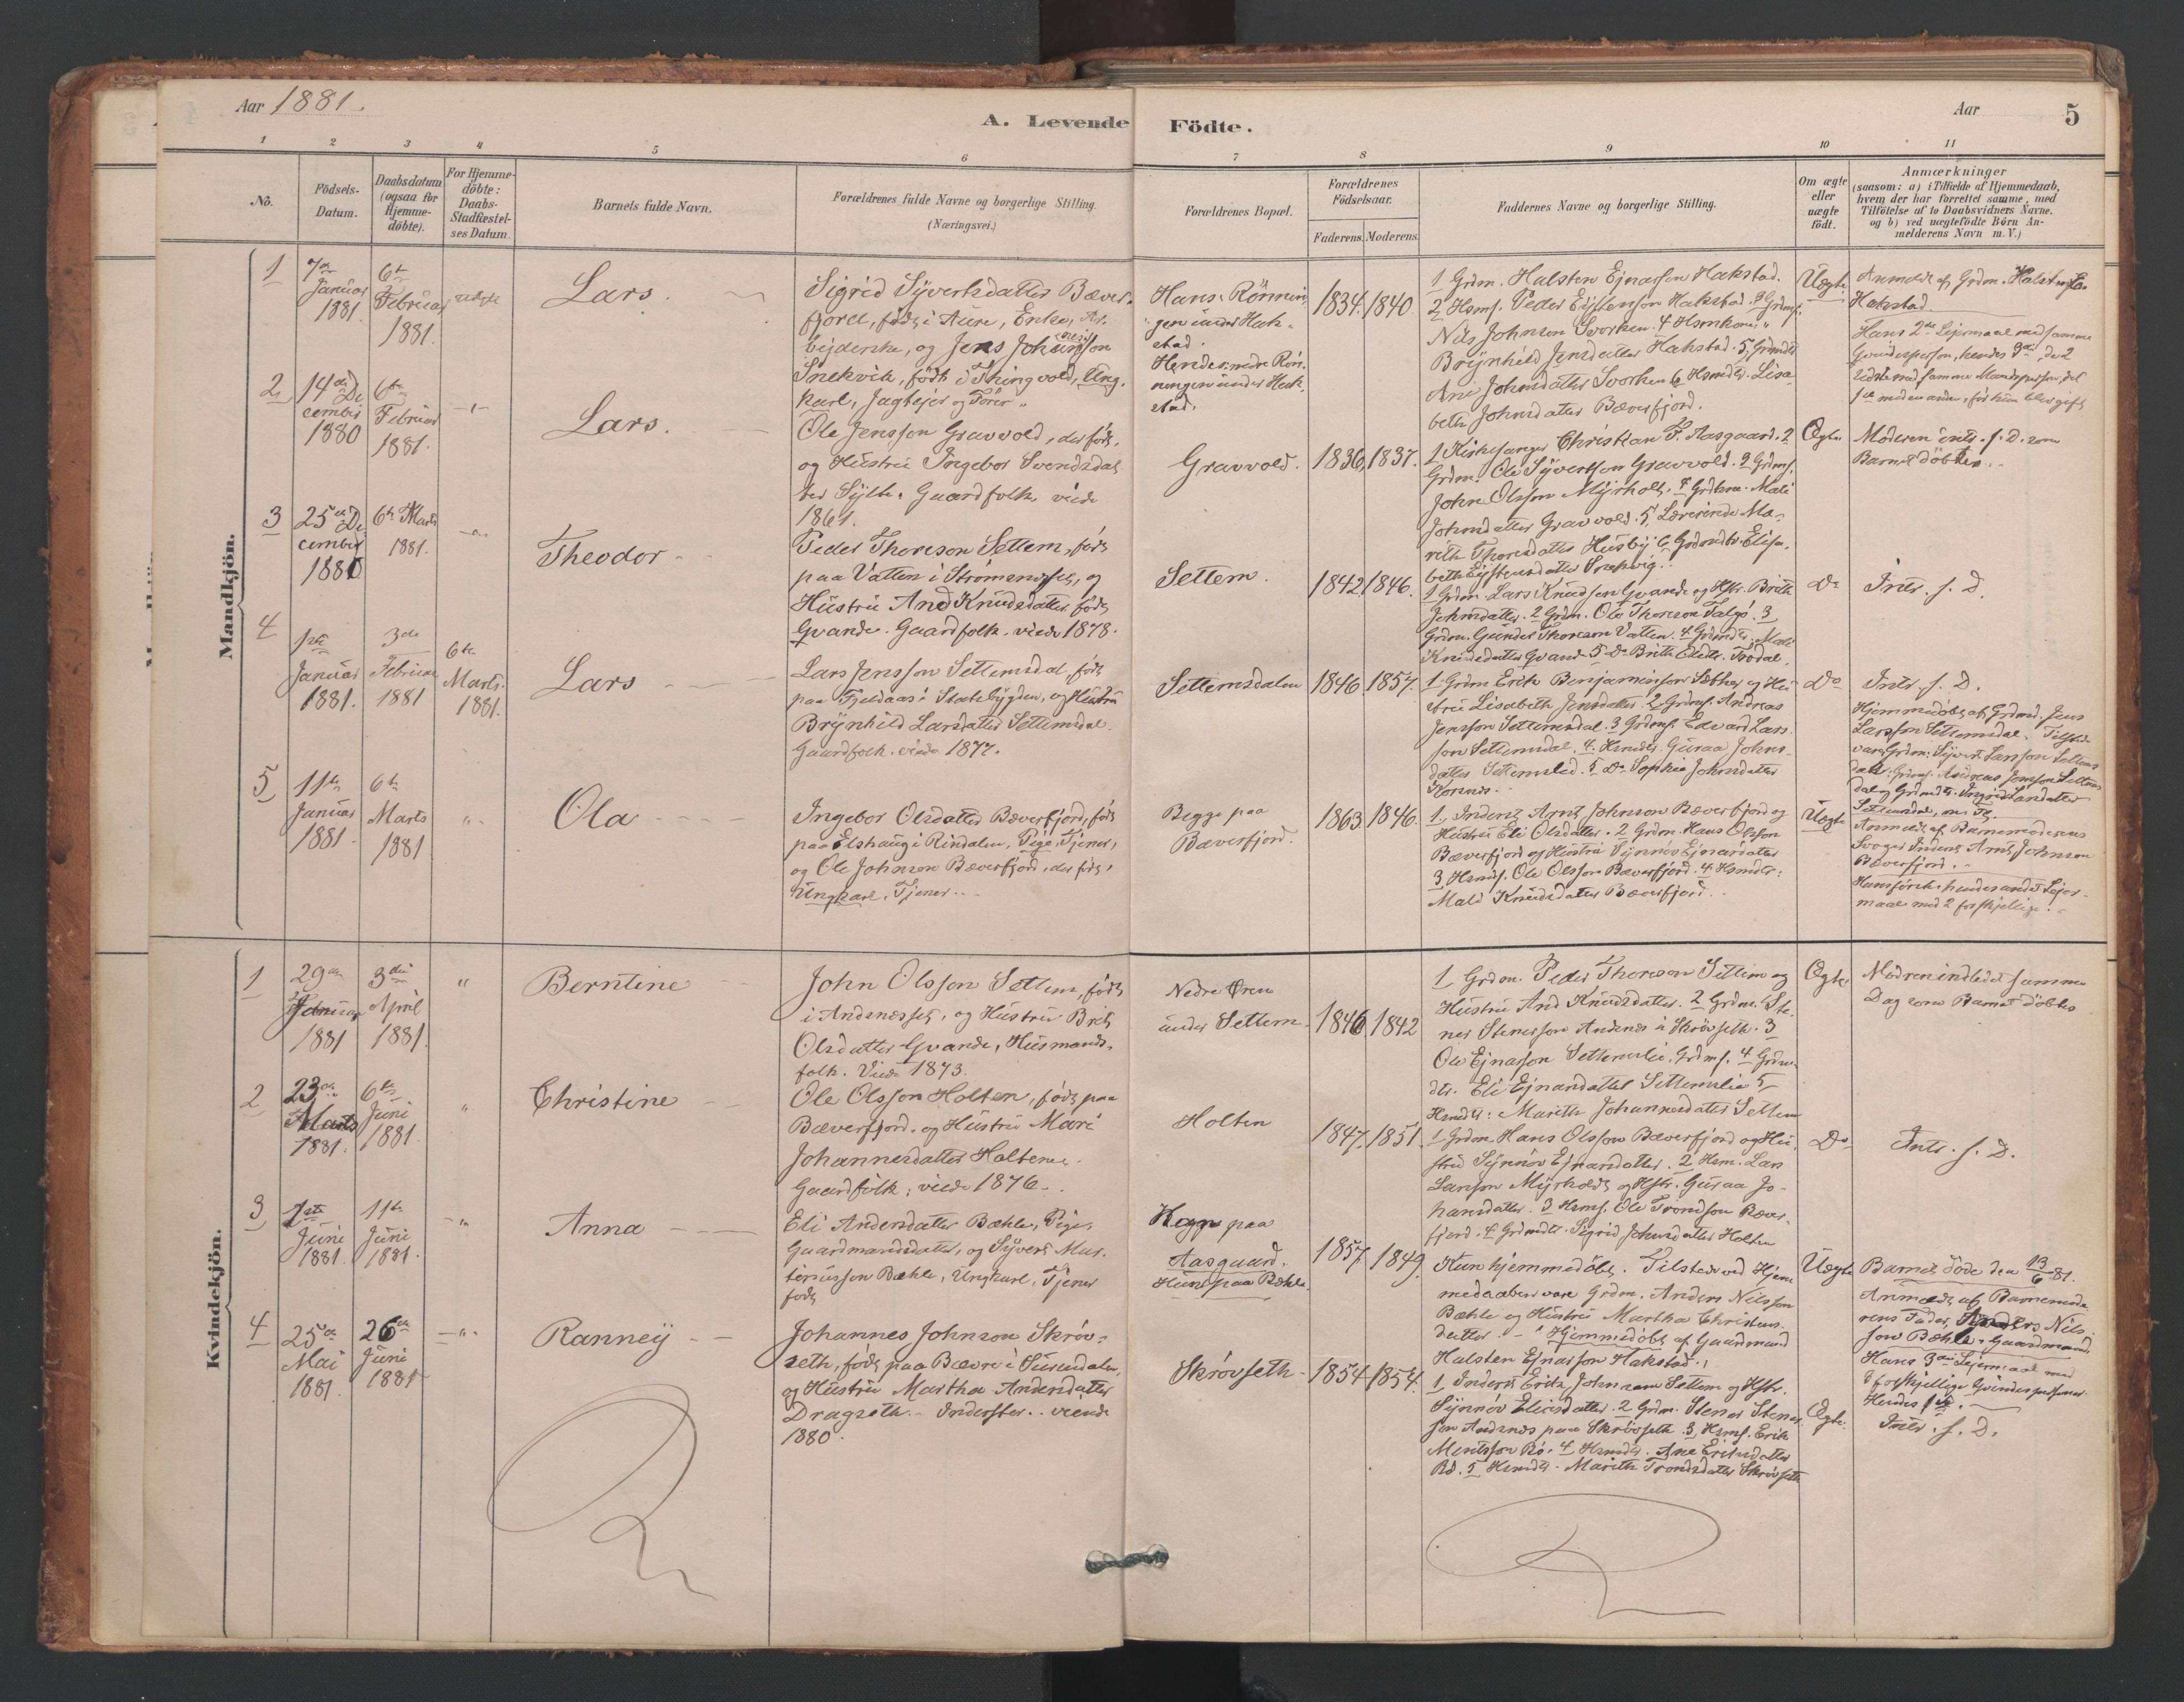 Aar 1881.
A. Levende Födte.
Aar
5
1 2 3 4 5 6 7 8 9 10 11
No.
Födsels-Datum.
Daabsdatum (ogsaa for Hjemme-döbte).
For Hjemme-döbte: Daabs-Stadfæstel-ses Datum.
Barnets fulde Navn.
Forældrenes fulde Navne og borgerlige Stilling. (Næringsvei.)
Forældrenes Bopæl.
Forældrenes Födselsaar.
Faderens. Moderens.
Faddernes Navne og borgerlige Stilling.
Om ægte eller uægte födt.
Anmærkninger
(saasom: a) i Tilfælde af Hjemmedaab,
hvem der har forrettet samme, med
Tilföielse af to Daabsvidners Navne.
og b) ved uægtefödte Börn An-
melderens Navn m. V.)
Mandkjön.
1
7de Januar 1881.
6te Februar 1881.
Lars.
Sigrid Sÿvertsdatter Bæver-
fjord, födt i Aure, Enke, Ar-
beiderske, og Jens Johansson
Snekvik, födt i Thingvold, Ung-
karl, Jægtejer og Förer
Hans: Rönnin-
gen under Hak-
stad.
Hendes: nedre Rön-
ningen under Hak-
stad.
1834. 1840.
1 Grdm. Halsten Ejnarsson Hakstad.
2 Hsms. Peder Eÿstensson Hakstad. 3 Grdms.
Nils Johnson Svorken. 4 Hsmkone
Brÿnhild Jensdatter Hakstad. 5, Grdmdt.
Ane Johnsdatter Svorken 6 Hsmdt. Lisa-
beth Johnsdatter Bæverfjord.
Uægte
Anmeldt af Grdm. Halsten
Hakstad
Hans 2det Lejermaal med samme
Qvindesperson, hendes 3die, de 2
sidste med samme Mandsperson, det
1ste med en anden, för hun blev gift
2
14de December 1880
6te Februar 1881.
Lars.
Ole Jensson Gravvold, der födt,
og Hustru Ingebor Svendsdat-
ter Sÿlte. Gaardfolk, viede
1861.
Gravvold.
1836. 1837.
1 Kirkesanger Christian F. Aasgaard. 2
Grdm. Ole Sÿvertson Gravvold. 3 Grdms.
John Olsson Mÿrholt. 4 Grdkone. Mali
Johnsdatter Gravvold. 5, Lærerinde Ma-
rith Thoresdatter Husbÿ 6 Grdmdt. Elisa-
beth Eÿstensdatter Snekvig.
Ægte
Moderen intr. s. D. som
Barnet döbtes.
3
25de December 1880
6te Marts 1881.
Theodor
Peder Thoreson Settem, födt
paa Vatten i Strömsnesset, og
Hustru Ane Knudsdatter, födt
Qvande. Gaardfolk. viede 1878.
Settem.
1842. 1846.
1 Grdm. Lars Knudsson Qvande og Hstr. Brith
Johnsdatter. 2 Grdm. Ole Thoreson Talgö. 3
Grdm. Gunder Thoreson Vatten. 4 Grdmdt. Mali
Knudsdatter Qvande 5 Do Brith Trödal.
Do
Intr. s. D.
4
1ste Januar 1881.
3de Februar 1881
6te Marts. 1881.
Lars
Lars Jensson Settemsdal, födt
paa Fjeldaas i Stadsbÿgden, og Hustru
Brÿnhild Larsdatter Settemsdal.
Gaardfolk. viede 1877.
Settemsdalen
1846. 1857.
1 Grdm. Erik Benjaminsson Sæther og Hu-
stru Lisabeth Jensdatter. 2, Grdms. Andreas
Jensson Settemsdal. 3 Grdms. Edvard Lars-
son Settemsdal. 4. Hsmdt. Guraa Johns-
datter Settemslid. 5 Do Sophie Johnsdatter
Do
Intr. s. D.
Hjemmedöbt af Grdmd. Jens
Larsson Settemsdal. Tilstede
vare Grdm. Sÿvert Larsson Settems-
dal, Grdms. Andreas Jensson Settems-
dal og Grdmdt. Ingrid Larsdatter
Settemsdal, m. Fl.
5
11te Januar 1881.
6te Marts 1881
Ola
Ingebor Olsdatter Bæverfjord, födt
paa Elshaug i Rindalen, Pige, Tjener,
og Ole Johnson Bæverfjord, der födt,
Ungkarl, Tjener
Begge paa
Bæverfjord.
1863. 1846.
1, Inderst Arnt Johnson Bæverfjord og
Hustru Eli Olsdatter. 2 Grdm. Hans Olsson
Bæverfjord og Hustru Sÿnnöv Ejnarsdatter
3, Hsms. Ole Olsson Bæverfjord. 4. Hsmdt.
Mali Knudsdatter Bæverfjord.
Uægte
Anmeldt af Barnemoderens
Svoger Inderst Arnt Johnson
Bæverfjord.
Hans förste, hendes andet Lejer-
maal med 2 forskjellige.
Kvindekjön.
1
29de Januar 1881
3die April 1881.
Berntine
John Olsson Settem, födt
i Andsnesset, og Hustru Brit
Olsdatter Qvande, Husmands-
folk. Viede 1873.
Nedre Ören
under Settem.
1846 1842
1 Grdm. Peder Thoreson Settem og
Hustru Ane Knudsdatter. 2 Grdm. Ste-
ner Stenersson Andsnes i Skrövseth. 3
Ole Ejnarson Settemslie, Grdms. 4 Grdm-
dtr. Eli Ejnarsdatter Settemslie 5
Hsmdt: Marith Johannesdatter Settem
Ægte
Modren indledet samme
Dag som Barnet döbtes
2
23de Marts 1881.
6te Juni 1881
Christine
Ole Olsson Holten, födt paa
Bæverfjord, og Hustru Mari
Johannesdatter Holten
Gaardfolk, viede 1876.
Holten
1847. 1851.
1 Grdm. Hans Olsson Bæverfjord og Hu-
stru Sÿnnöv Ejnarsdatter. 2 Hsm. Lars
Larsson Mÿrholt og Hstr. Guraa Jo-
hansdatter. 3 Hsms. Ole Trondson Bæver-
fjord. 4 Grdmdt. Sigrid Johnsdatter Holten
Do
Intr. s. D.
3
1ste Juni 1881.
11te Juni 1881.
Anna
Eli Andersdatter Bæhle, Pige,
Gaardmandsdatter, og Sÿvert
Bæhle, Ungkarl, Tjener
födt
paa
Aasgaard.
Hun paa Bæhle.
1857. 1849.
Kun hjemmedöbt. Tilstede ved Hjem-
medaaben vare Grdm. Anders Nilsson
Bæhle og Hustru Martha Christens-
datter. Hjemmedöbt af Gaardmand
Halsten Ejnarsson Hakstad.
Uægte
Barnet döde den 13/6 81.
Anmeldt af Barnemode-
rens Fader, Anders Nils-
son Bæhle, Gaardmand
Hans 3die Lejermaal med
3 forskjellige Qvindespersoner.
Hendes 1ste.
4
25de Mai 1881.
26de Juni 1881
Ranneÿ
Johannes Johnson Skröv-
seth, födt paa Bævre i Surendalen,
og Hustru Martha Andersdatter
Dragseth. Inderster. viede
1880.
Skrövseth
1854 1854.
1, Inderst Erik Johnson Settem og Hstr.
Sÿnnöv Eliasdatter. 2 Grdm. Stener Stener-
son Andsnes paa Skrövseth. 3, Hsms. Erik
Mentsson Bö. 4 Hsmdt. Ane Eriksdatter
Bö. 5 Hsmdt. Marith Trondsdatter Skrövseth
Ægte.
Intr. s. D.